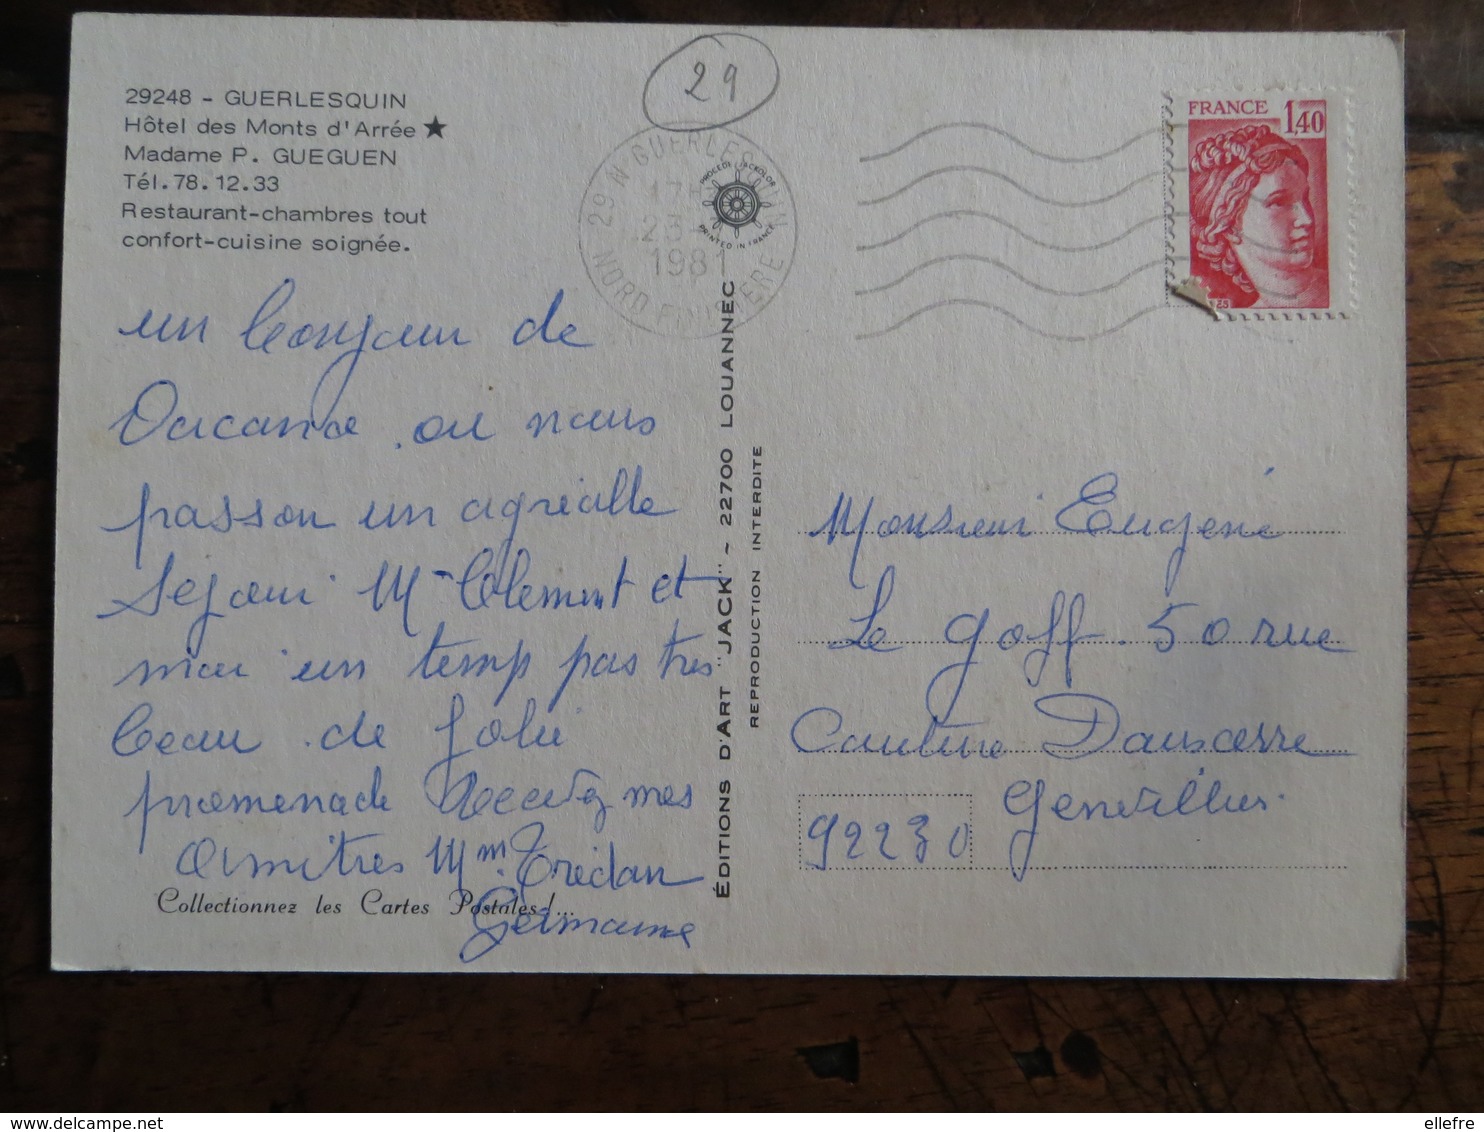 29248 - GUERLESQUIN
Hôtel des Monts d'Arrée ★
Madame P. GUEGUEN
Tél. 78.12.33
Restaurant-chambres tout
confort-cuisine soignée.
29
29 N GUERLESQUIN
17
23
1981
NORD FINISTERE
PROCEDE JACKOLOR
PRINTED IN FRANCE
FRANCE 1,40
un bonjour de
Vacance ou nous
passon un agréable
Séjour M Clement et
moi un temp pas tres
beau de jolie
promenade Recevez mes
Amitres Mme Tredan
Germaine
Collectionnez les Cartes Postales!...
ÉDITIONS D'ART "JACK" ~ 22700 LOUANNEC
REPRODUCTION INTERDITE
Monsieur Eugene
Le goff 50 rue
Couture Dauxerre
Genevilliers
92230
ellefre